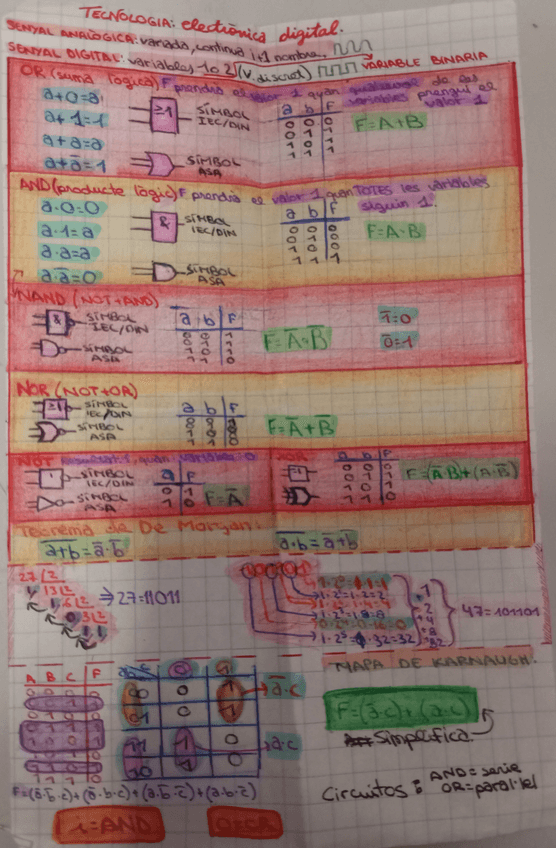 TECNOLOGIA: electrònica digital.
SENYAL ANALÒGICA: variada, contínua 1+1 nombre.
SENYAL DIGITAL: variables 1 o 2 (V. discret) VARIABLE BINARIA
OR (suma lògica) F prendrà el valor 1 quan qualsevol de les
variables prengui el
valor 1.
a+0=a
a+1=1
a+a=a
a+ā=1
≥1
SÍMBOL
IEC/DIN
SÍMBOL
ASA
a b F
0 0 0
0 1 1
1 0 1
1 1 1
F=A+B
AND (producte lògic) F prendrà el valor 1 quan TOTES les variables
siguin 1.
a·0=0
a·1=a
a·a=a
a·ā=0
&
SÍMBOL
IEC/DIN
SÍMBOL
ASA
a b F
0 0 0
0 1 0
1 0 0
1 1 1
F=A·B
NAND (NOT+AND)
&
SÍMBOL
IEC/DIN
SÍMBOL
ASA
a b F
0 0 1
0 1 1
1 0 1
1 1 0
F=Ā·B̄
1̄=0
0̄=1
NOR (NOT+OR)
≥1
SÍMBOL
IEC/DIN
SÍMBOL
ASA
a b F
F=Ā+B̄
NOT quan variable=0
1
SÍMBOL
IEC/DIN
SÍMBOL
ASA
a F
0 1
1 0
F=Ā
a b F
0 0 0
0 1 1
1 0 1
F=(Ā·B)+(A·B̄)
Teorema de De Morgan:
a̅+̅b̅=ā·b̄
a̅·̅b̅=ā+b̄
27 |2
1 13 |2
1 6 |2
0 3 |2
1 1
⇒27=11011
1·2¹=1·2=2
1·2⁵=1·32=32
1
2
4
8
32
47=101101
A B C F
0 1
00 0 1
01 0 1
11 1 0
10 1 0
ā·c
a·c̄
MAPA DE KARNAUGH.
F=(ā·c)+(a·c̄)
Simplifica.
F=(ā·b̄·c)+(ā·b·c)+(a·b̄·c̄)+(a·b·c̄)
1=AND
0=OR
Circuitos: AND=serie
OR=paral·lel